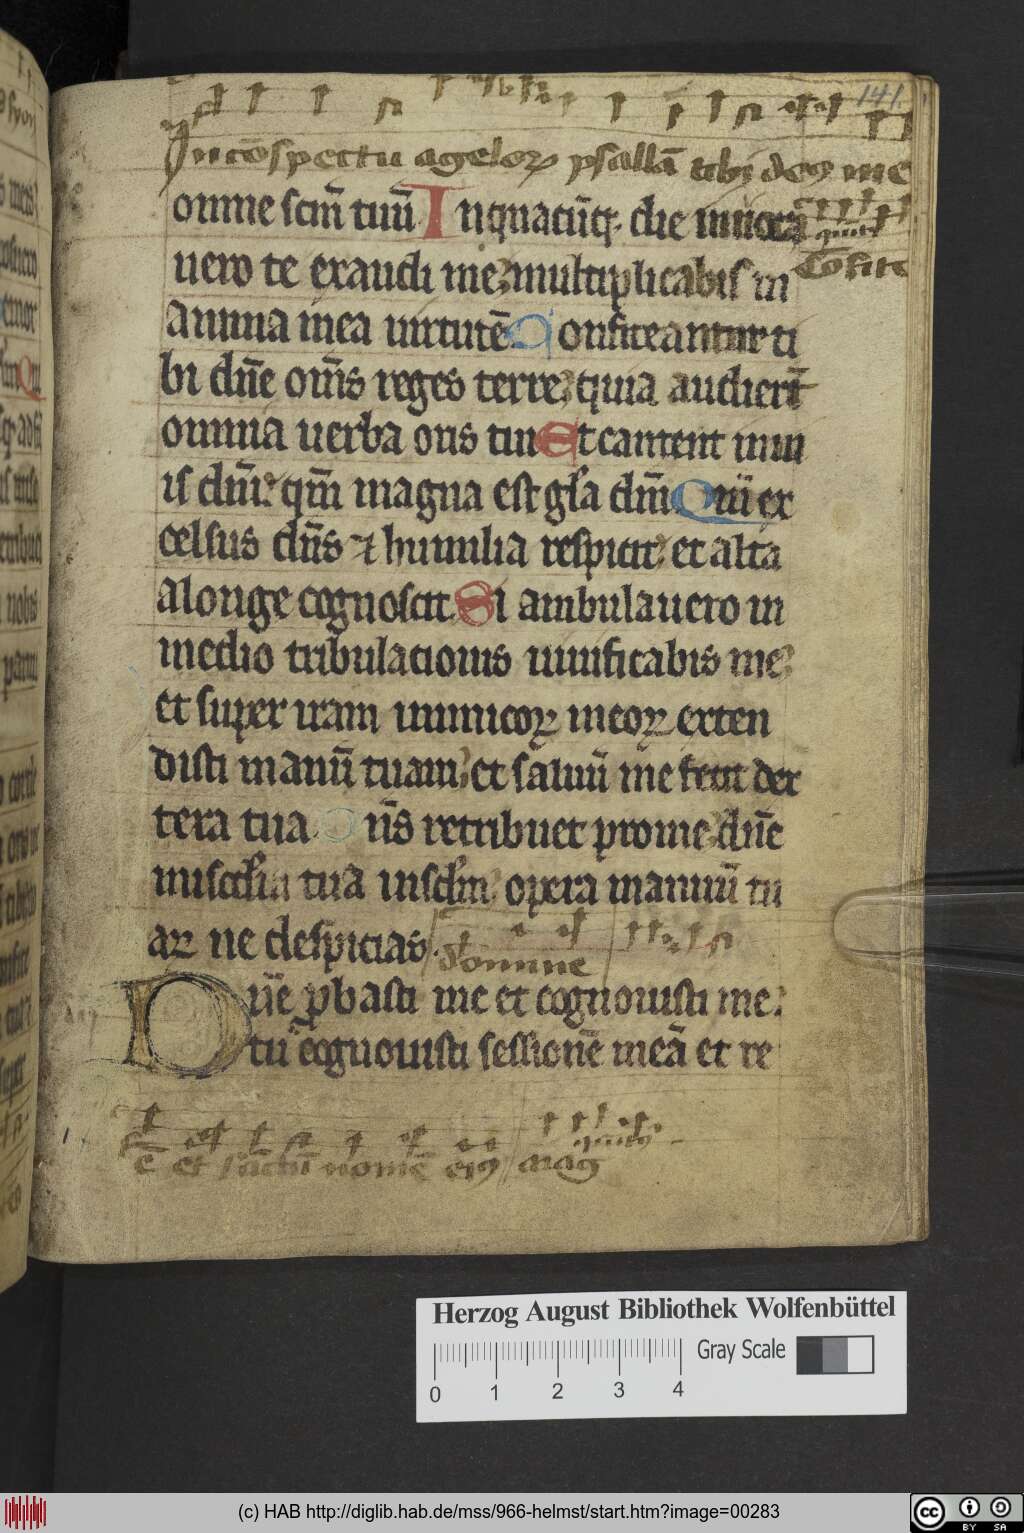 141.
In cōspectu āgeloꝝ psallā tibi deꝰ me
omne sc̄m tuū In quacūqꝫ die inuoca
Cōfite
uero te exaudi me multiplicabis in
anima mea uirtutē Confiteantur ti
bi dn̄e om̄s reges terre quia audierūt
omnia uerba oris tui Et cantent in ui
is dn̄i qm̄ magna est gl'a dn̄i Qm̄ ex
celsus dn̄s ⁊ humilia respicit et alta
a longe cognoscit Si ambulauero in
medio tribulationis uiuificabis me
et super iram inimicoꝝ meoꝝ exten
disti manū tuam et saluū me fecit dex
tera tua Dn̄s retribuet pro me dn̄e
mis̄cdia tua in sc̄lm opera manuū tu
aꝝ ne despicias
domine
Dn̄e ꝓbasti me et cognouisti me
tu cognouisti sessionē meā et re
ē et sāctū nomē eiꝰ aīa
Herzog August Bibliothek Wolfenbüttel
Gray Scale
0 1 2 3 4
(c) HAB http://diglib.hab.de/mss/966-helmst/start.htm?image=00283
cc BY SA